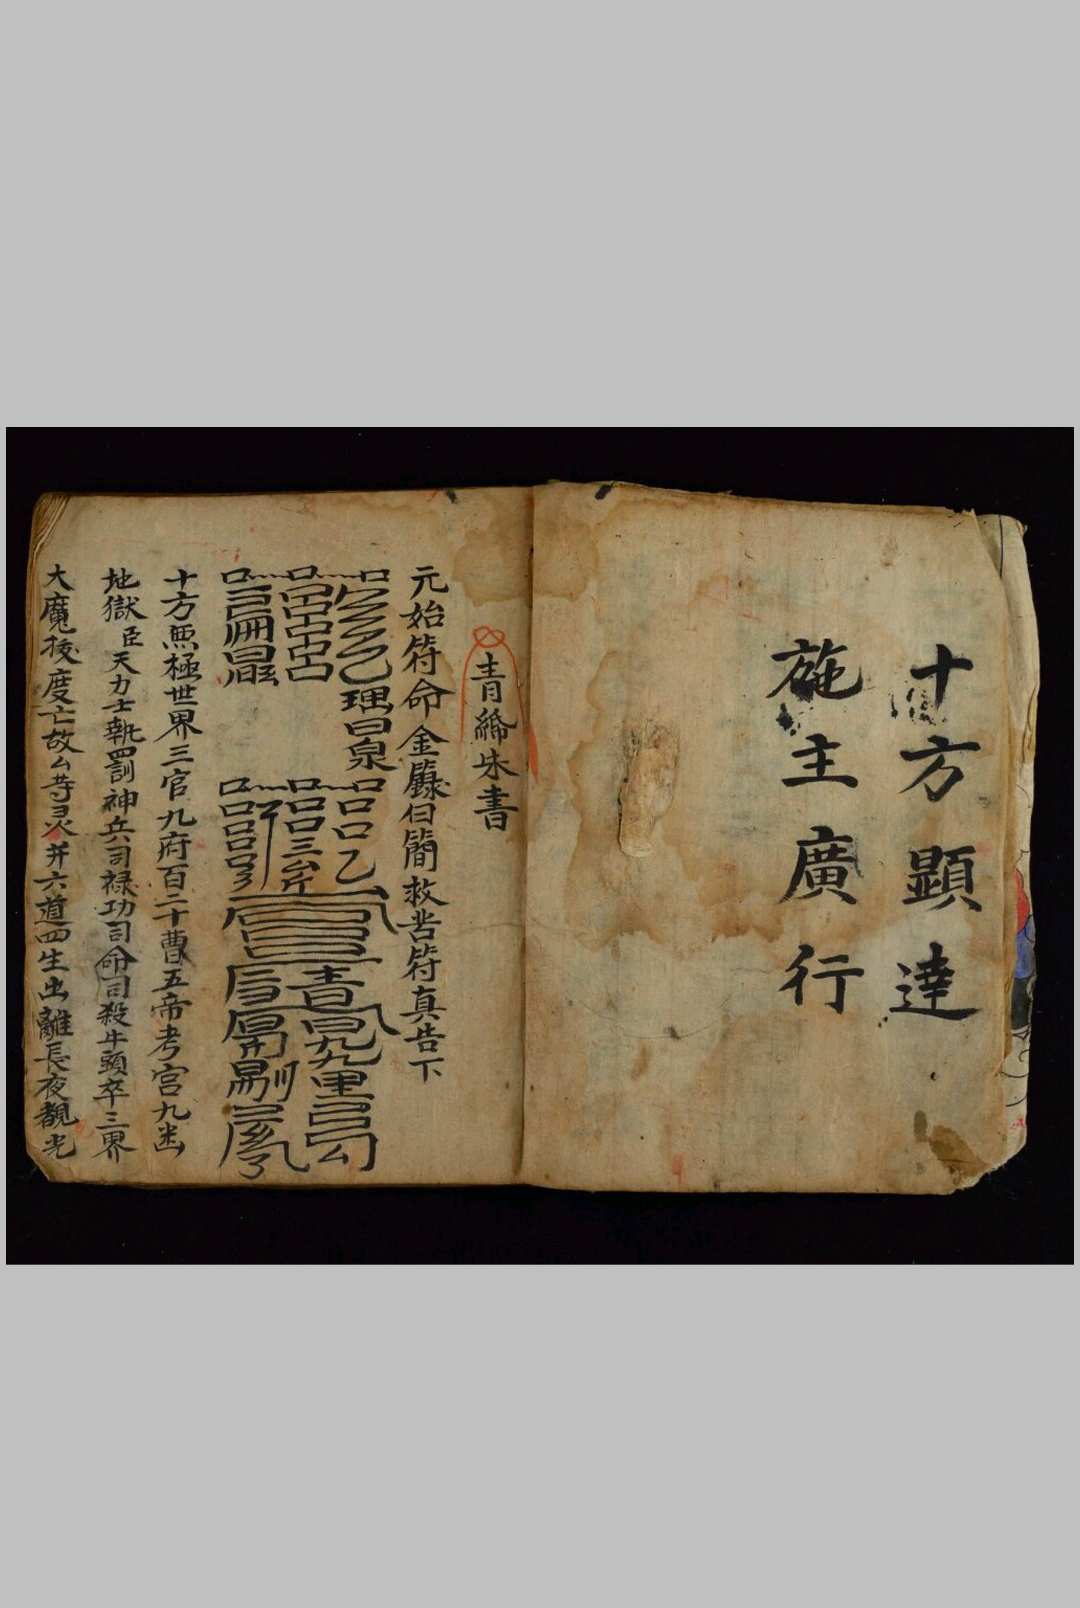 十方顕達
施主廣行
青紙朱書
元始符命金籙白簡救苦符真告下
十方無極世界三官九府百二十曹五帝考官九幽
地獄臣天力士執罰神兵司禄功司命司殺牛頭卒三界
大魔拔度亡故厶等灵并六道四生出離長夜覩光